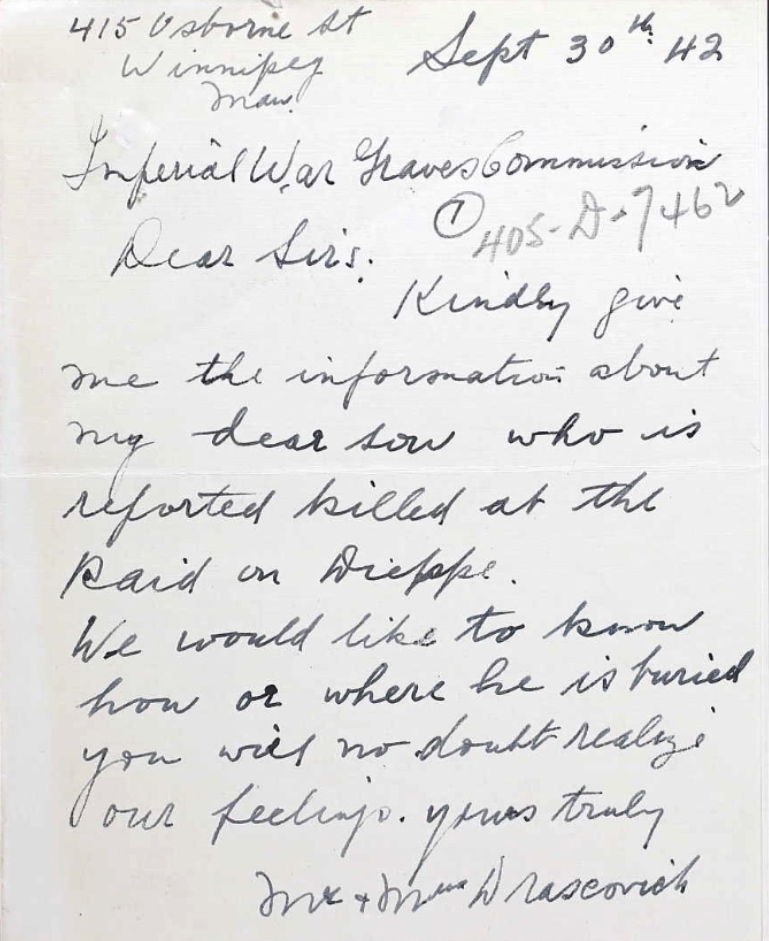 415 Osborne St
Winnipeg
Man.
Sept 30th 42
Imperial War Graves Commission
① 405-D-7462
Dear Sir's.
Kindly give
me the information about
my dear son who is
reported killed at the
Raid on Dieppe.
We would like to know
how or where he is buried
you will no doubt realize
our feelings. yours truly
Mr + Mrs Drascovich